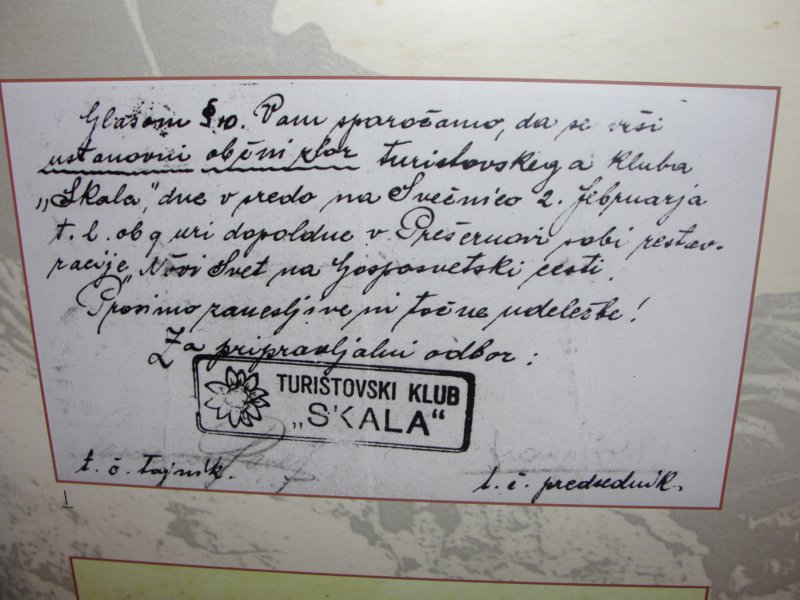 Glasom § 10. Vam sporočamo, da se vrši
ustanovni občni zbor turistovskega kluba
„Skala“, dne v sredo na Svečnico 2. februarja
t. l. ob 9 uri dopoldne v Prešernovi sobi restav-
racije „Novi Svet na Gosposvetski cesti.
Prosimo zanesljive in točne udeležbe!
Za pripravljalni odbor:
TURISTOVSKI KLUB
„SKALA“
t. č. tajnik.
t. č. predsednik.